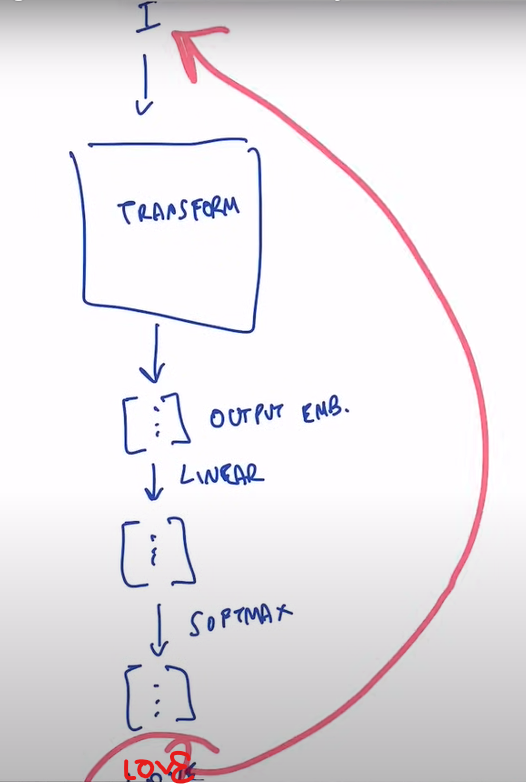 I
TRANSFORM
OUTPUT EMB.
LINEAR
SOFTMAX